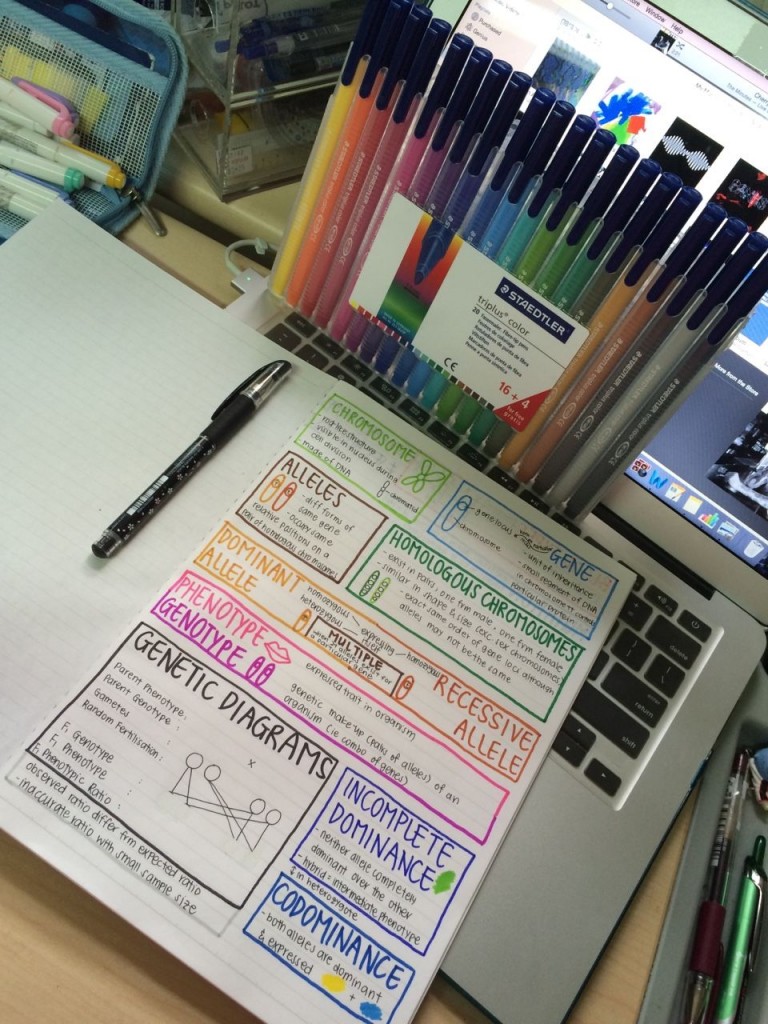 Window Help
Purchased
Genius
More from the Store
STAEDTLER
triplus color
16 + 4
for free
gratis
CE
delete
return
shift
CHROMOSOME
visible in nucleus during
cell division
made of DNA
chromatid
ALLELES
- diff forms of
same gene
- occupy same
relative positions on a
pair of homologous chromosomes
gene locus
chromosome
GENE
unit of inheritance
small segment of DNA
in chromosome
particular protein
HOMOLOGOUS CHROMOSOMES
- exist in pairs; one frm male, one frm female
- similar in shape & size (exc. sex chromosomes)
- exact same order of gene loci although
alleles may not be the same
DOMINANT
ALLELE
homozygous
heterozygous
expressing
homozygous
MULTIPLE
RECESSIVE
ALLELE
PHENOTYPE
expressed trait in organism
GENOTYPE
genetic make-up (pairs of alleles) of an
organism (ie combo of genes)
GENETIC DIAGRAMS
Parent Phenotype:
Parent Genotype :
Gametes :
Random Fertilisation :
F₁ Genotype :
F₁ Phenotype :
F₁ Phenotypic Ratio :
x
observed ratio differ frm expected ratio
- inaccurate ratio with small sample size
INCOMPLETE
DOMINANCE
- neither allele completely
dominant over the other
- hybrid = intermediate phenotype
in heterozygote
CODOMINANCE
- both alleles are dominant
& expressed
+